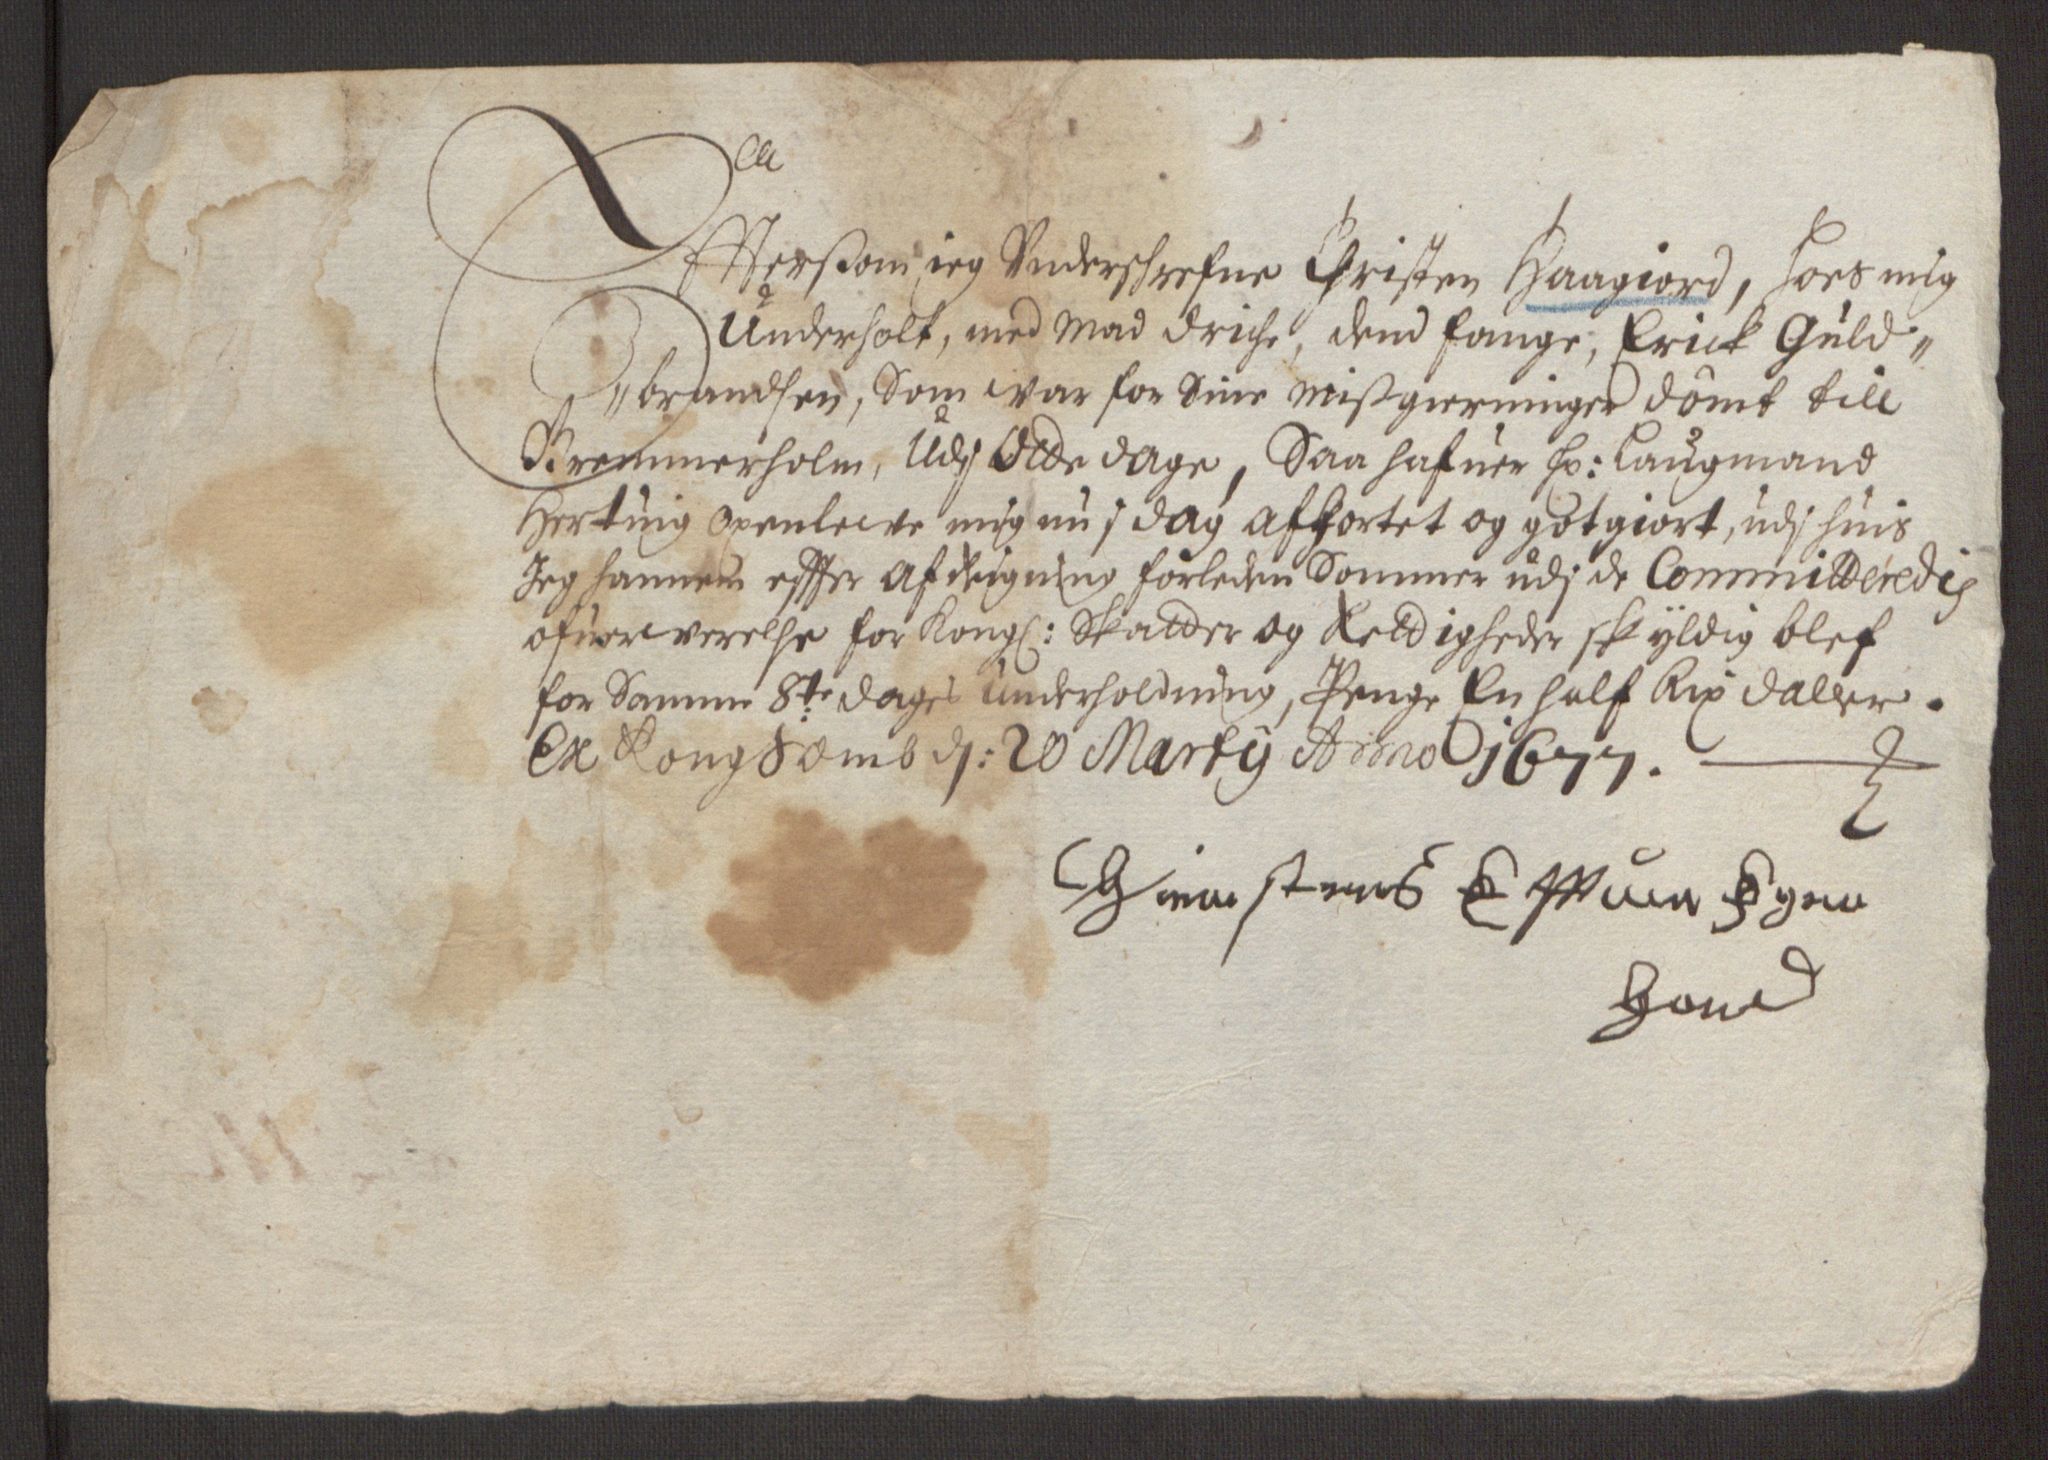 Effterßom ieg Underschrefne Christen Haagiord, hoes mig
Underholt, med Mad driche, dend fange, Erick Guld„
„brandsen, Som war for Sine Mißgierninger dömt till
Bremmerholm, Udj Otte dage, Saa hafuer Hr: Laugmand
Hertuig open​lewe mig nu j dag afkortet og gotgiort, udj huis
Jeg hannem effter afReigning forleden Sommer udj de Committeredis
ofuerwerelse for Kongl: Skatter og Rettigheder skyldig blef
for Samme 8te dages Underholdning, Penge En half Rix daller.
Ex Kongs d: 20 Marty Anno 1677.
Egen
Hand